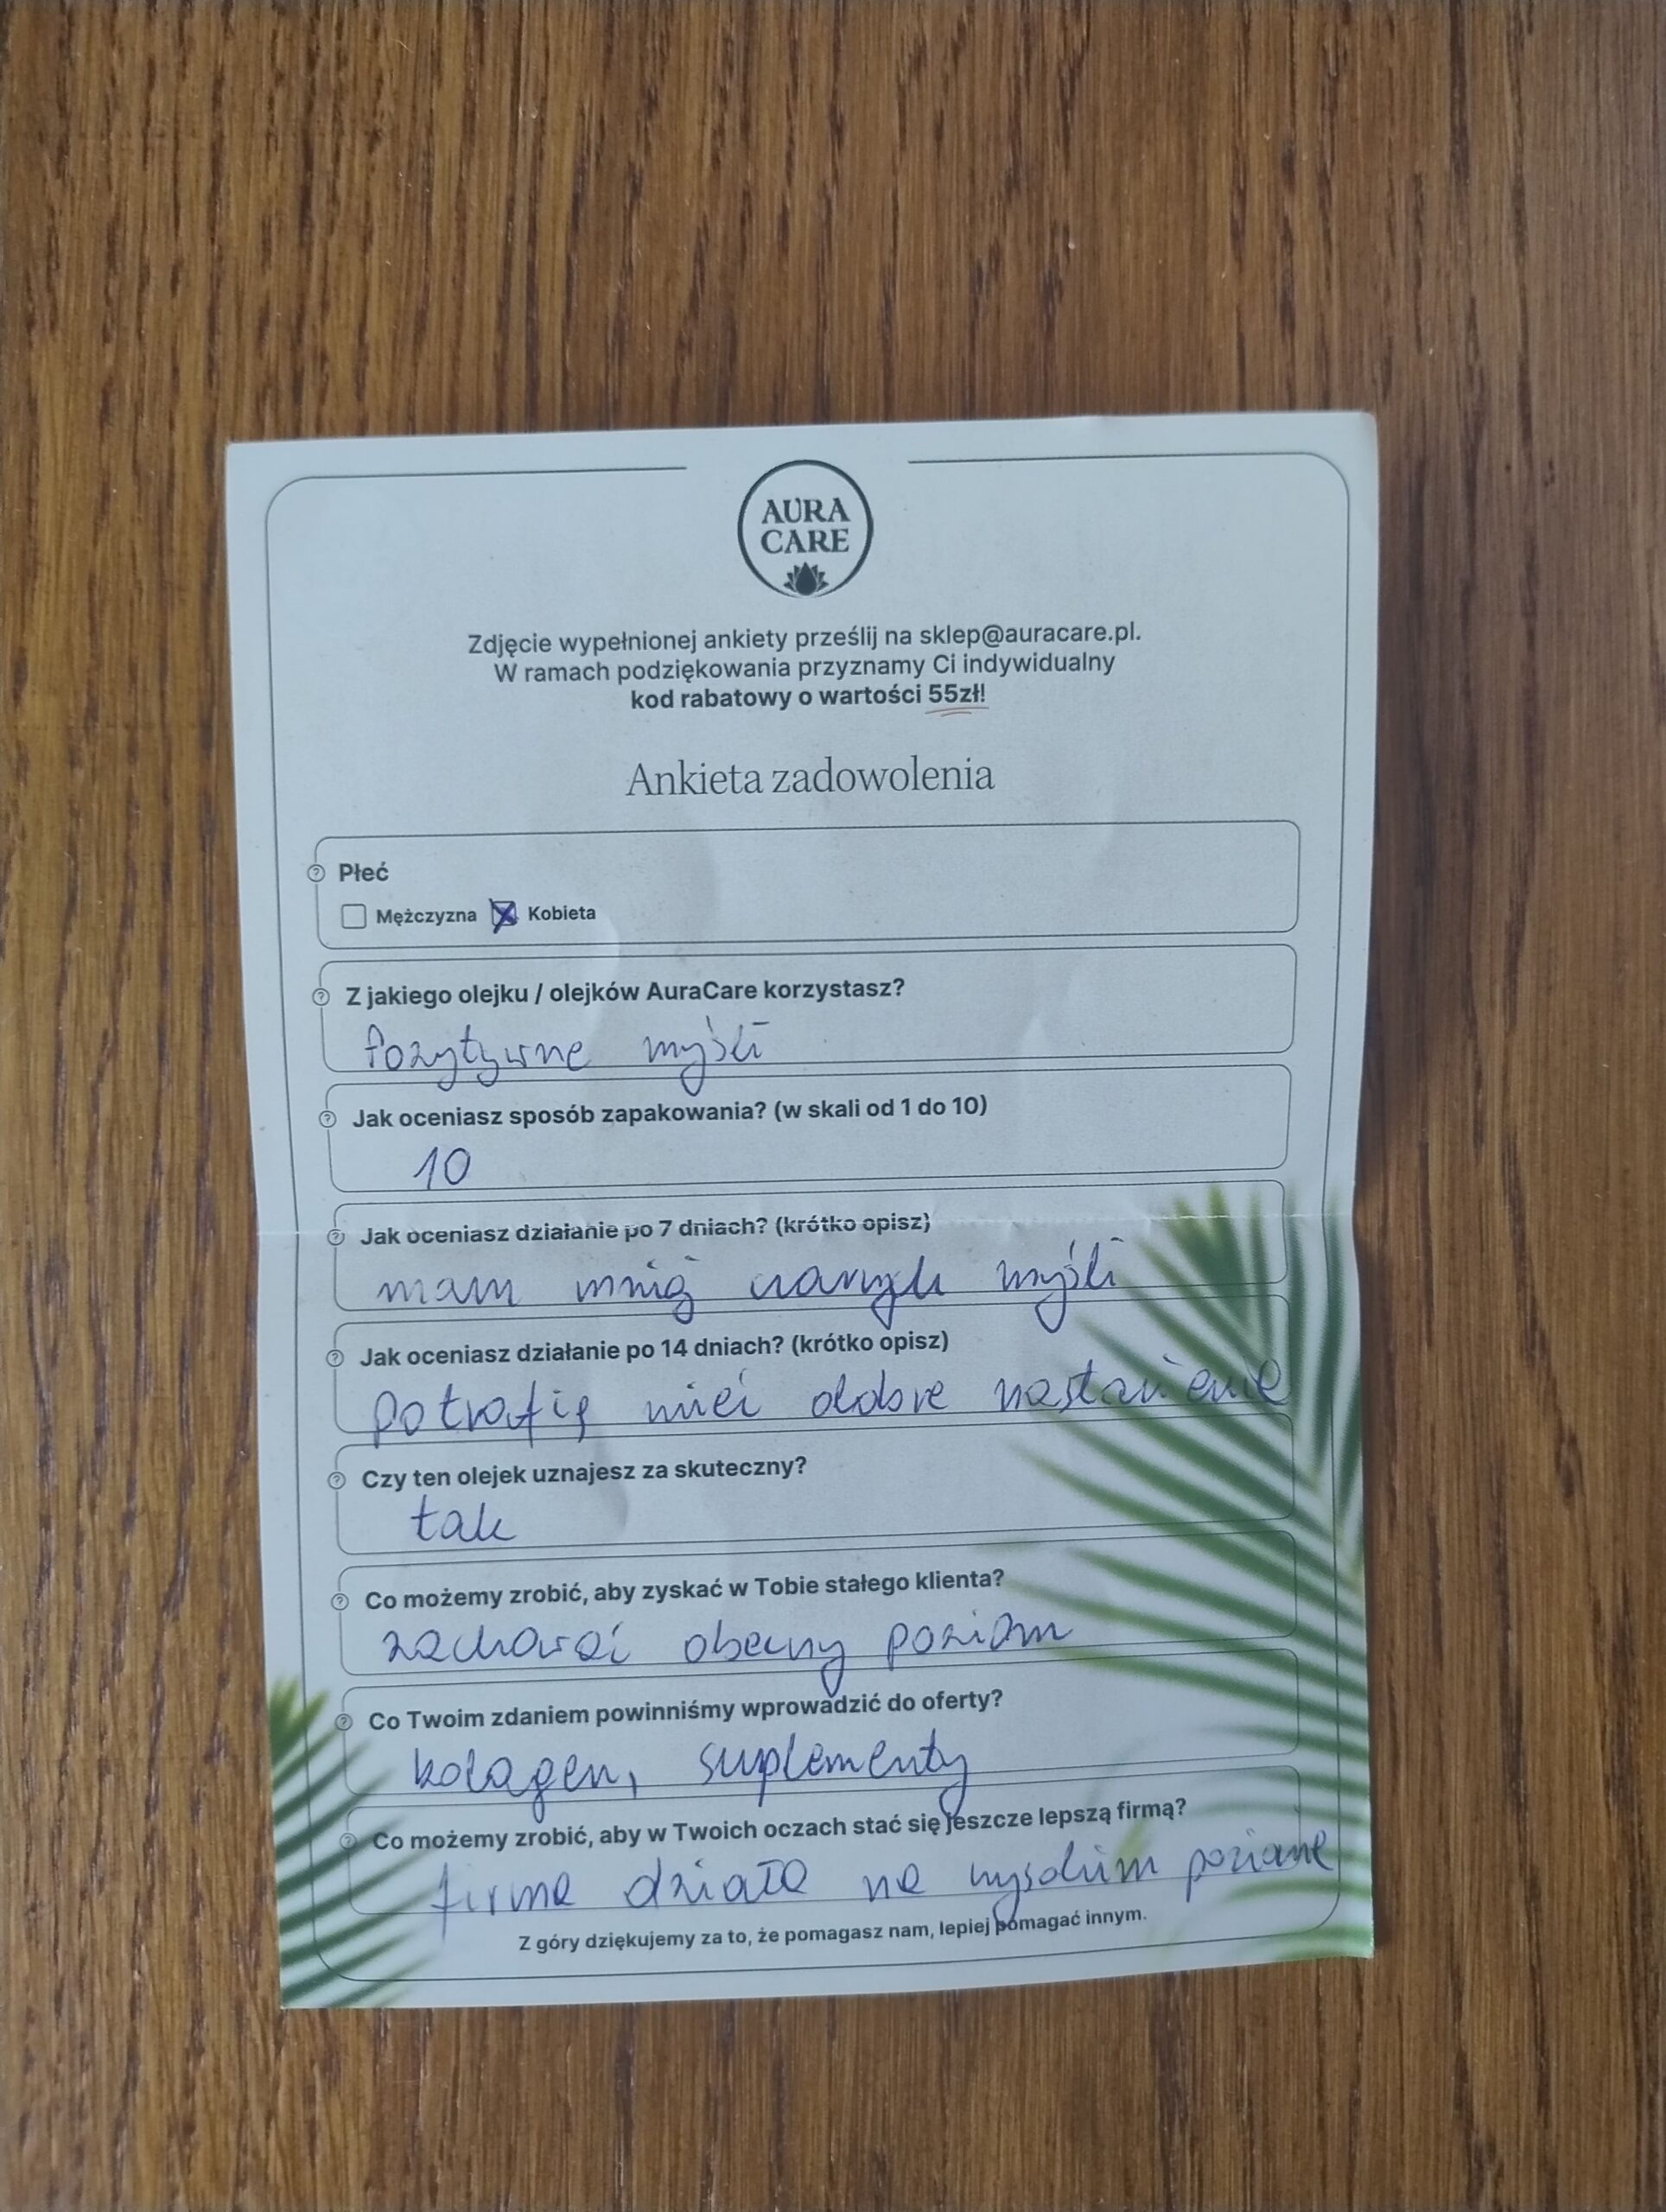 AURA
CARE
Zdjęcie wypełnionej ankiety prześlij na sklep@auracare.pl.
W ramach podziękowania przyznamy Ci indywidualny
kod rabatowy o wartości 55zł!
Ankieta zadowolenia
Płeć
Mężczyzna Kobieta
Z jakiego olejku / olejków AuraCare korzystasz?
Pozytywne myśli
Jak oceniasz sposób zapakowania? (w skali od 1 do 10)
10
Jak oceniasz działanie po 7 dniach? (krótko opisz)
mam mniej czarnych myśli
Jak oceniasz działanie po 14 dniach? (krótko opisz)
potrafię mieć dobre nastawienie
Czy ten olejek uznajesz za skuteczny?
tak
Co możemy zrobić, aby zyskać w Tobie stałego klienta?
zachować obecny poziom
Co Twoim zdaniem powinniśmy wprowadzić do oferty?
kolagen, suplementy
Co możemy zrobić, aby w Twoich oczach stać się jeszcze lepszą firmą?
firma działa na wysokim poziome
Z góry dziękujemy za to, że pomagasz nam, lepiej pomagać innym.